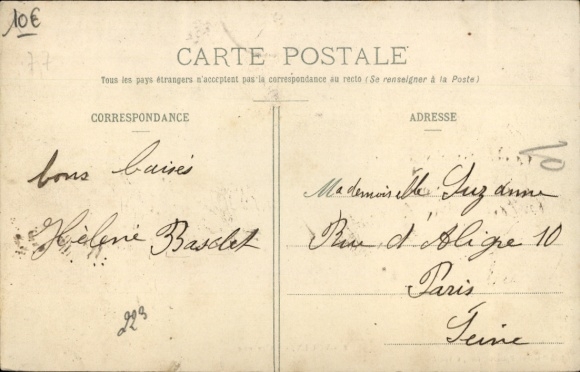 10€
77
CARTE POSTALE
Tous les pays étrangers n'acceptent pas la correspondance au recto (Se renseigner à la Poste)
CORRESPONDANCE
bons baisés
Hélène Basdet
223
ADRESSE
10
Mademoiselle Suzanne
Rue d'Aligre 10
Paris
Seine